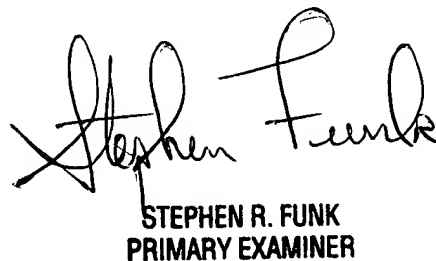 Stephen Funk
STEPHEN R. FUNK
PRIMARY EXAMINER